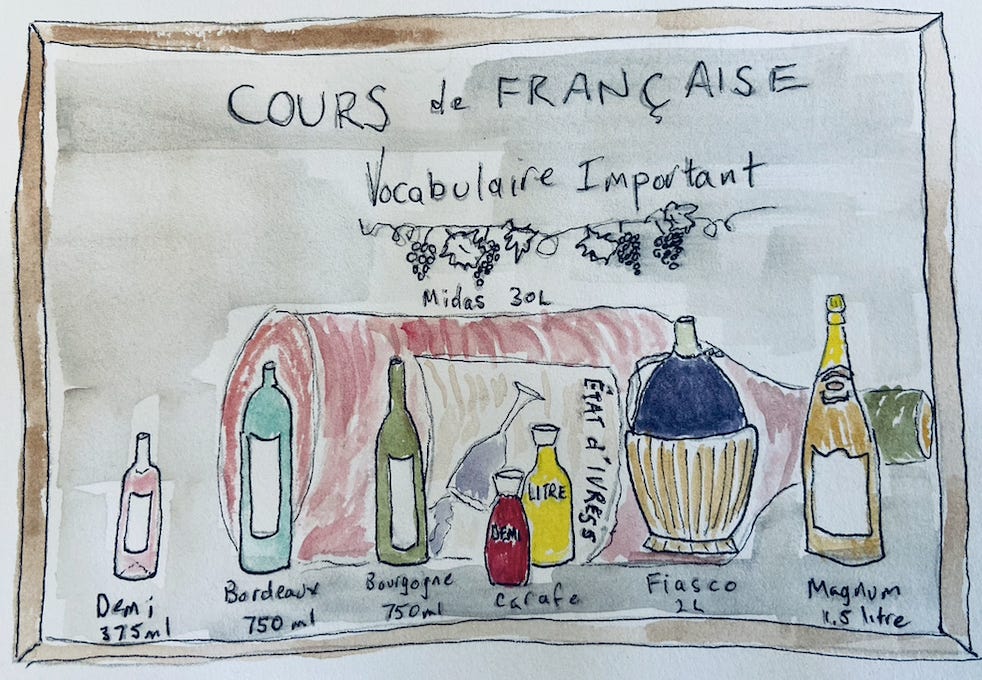 COURS de FRANÇAISE
Vocabulaire Important
Midas 30L
ÉTAT d'IVRESS
LITRE
DEMI
Demi
375ml
Bordeaux
750 ml
Bourgogne
750ml
Carafe
Fiasco
2L
Magnum
1.5 litre